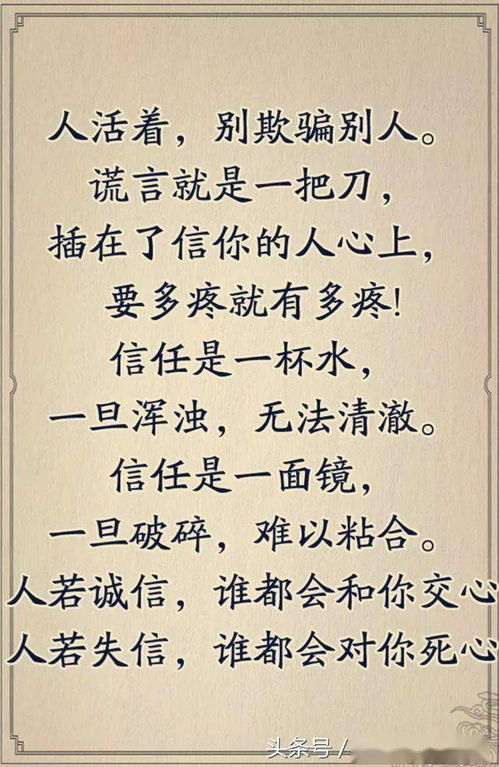 人活着，别欺骗别人。
谎言就是一把刀，
插在了信你的人心上，
要多疼就有多疼!
信任是一杯水，
一旦浑浊，无法清澈。
信任是一面镜，
一旦破碎，难以粘合。
人若诚信，谁都会和你交心
人若失信，谁都会对你死心
头条号/